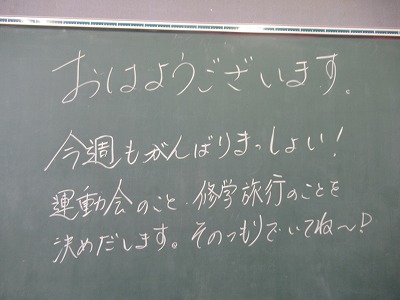 おはようございます。
今週もがんばりまっしょい!
運動会のこと、修学旅行のことを
決めだします。そのつもりでいてね〜!